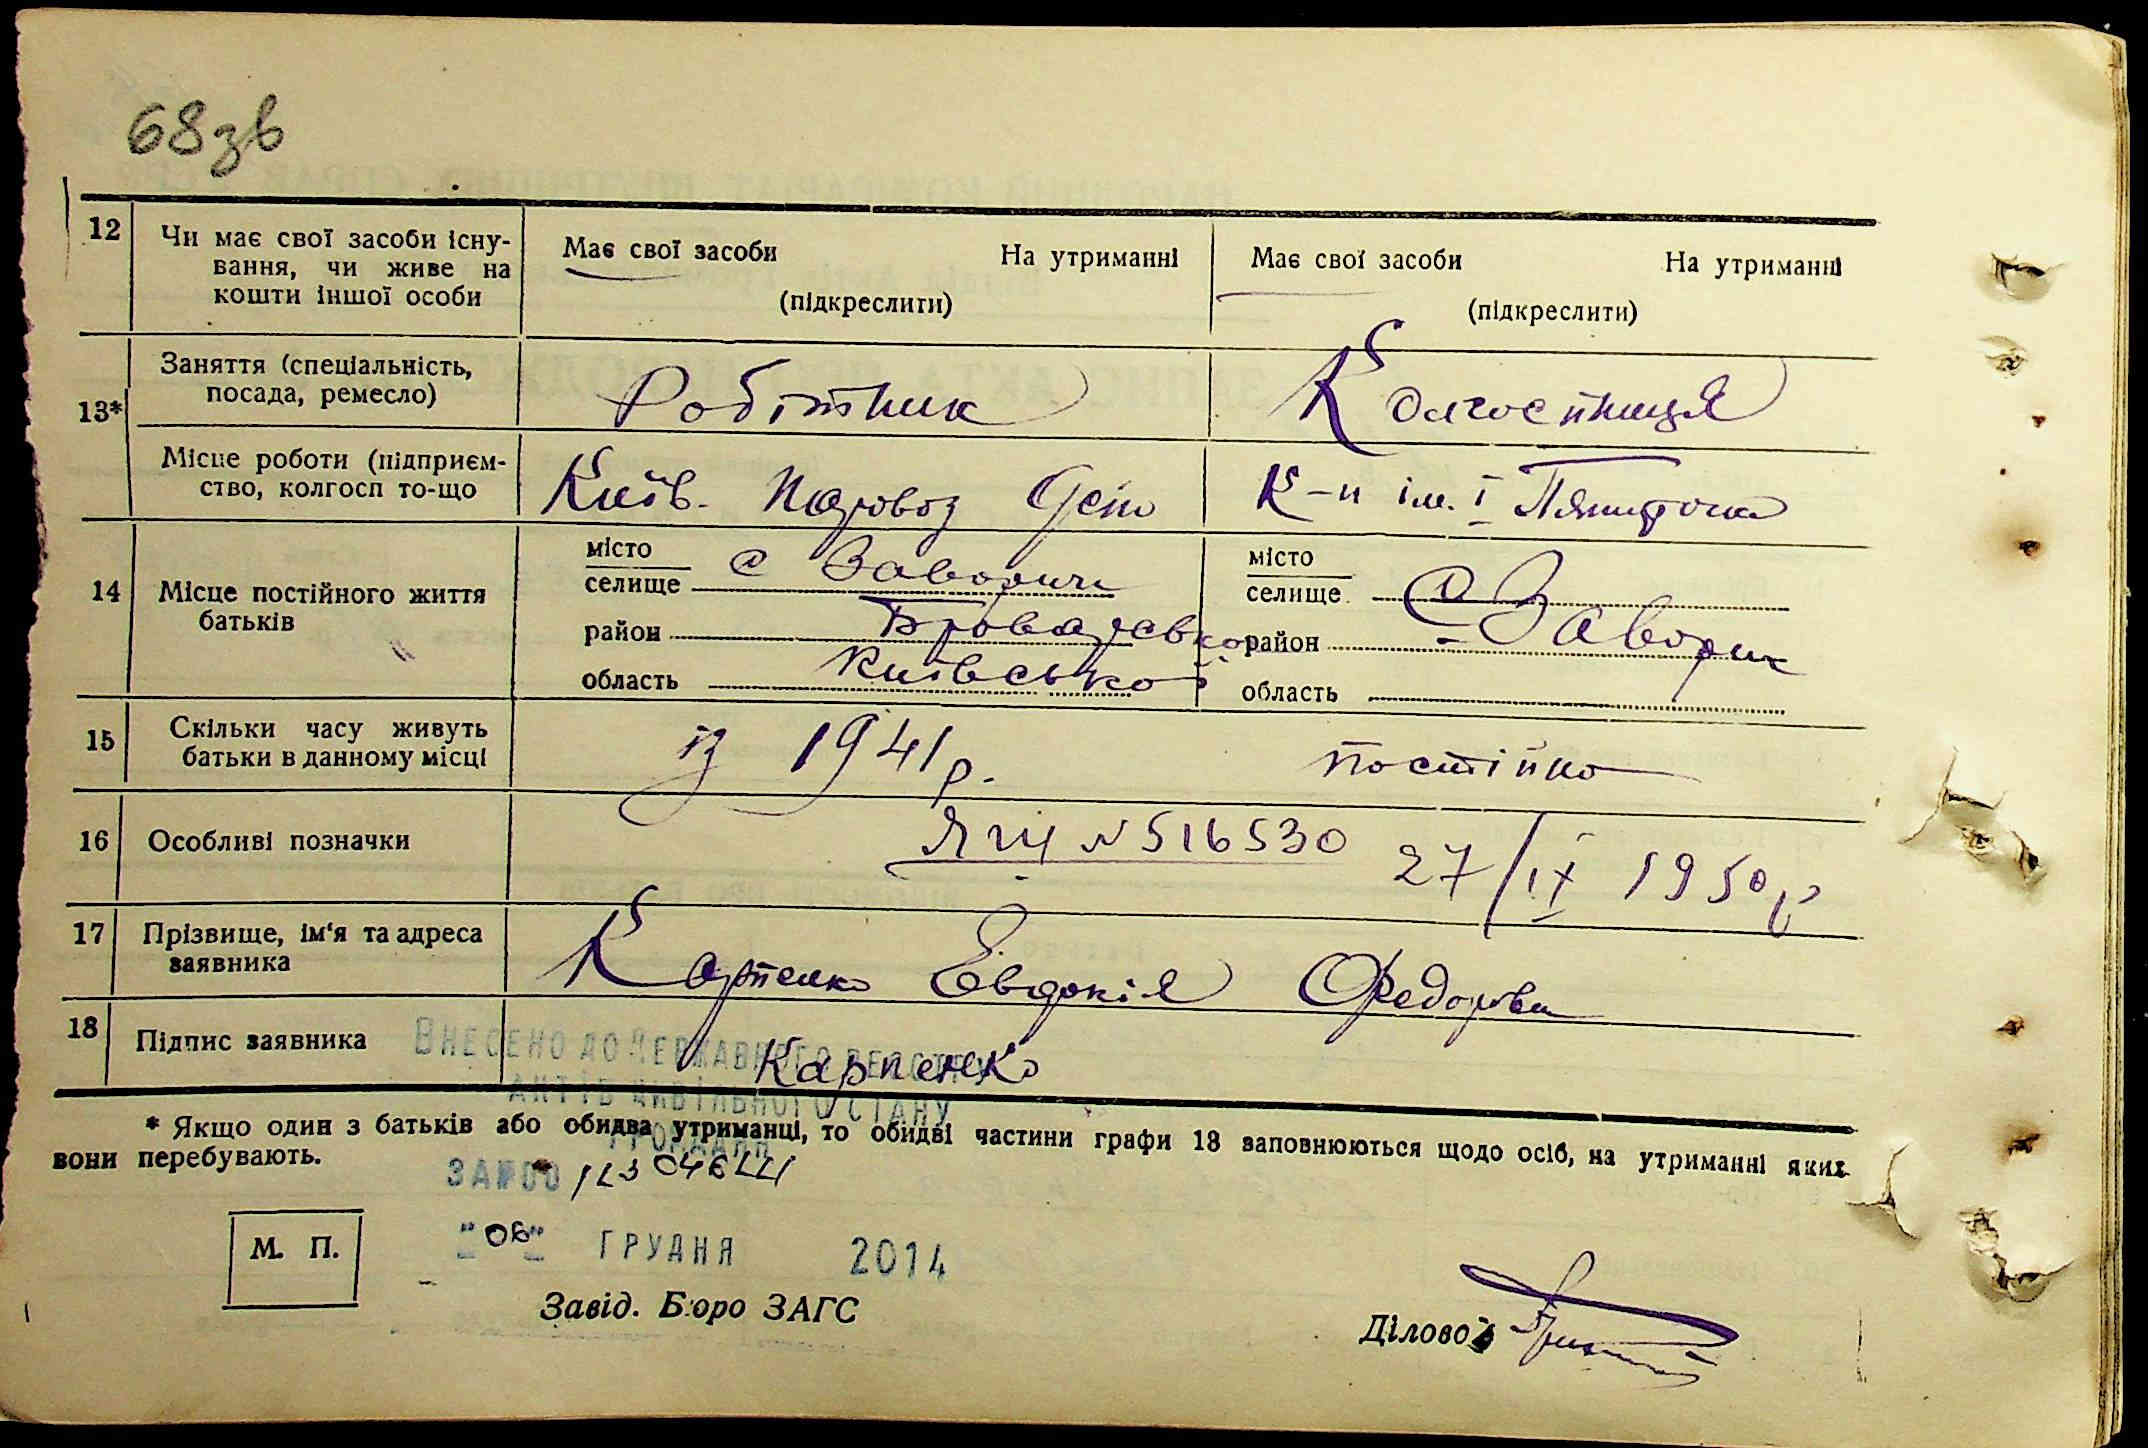 68зв
12 Чи має свої засоби існу-
вання, чи живе на
кошти іншої особи
Має свої засоби На утриманні
(підкреслити)
Має свої засоби На утриманні
(підкреслити)
13* Заняття (спеціальність,
посада, ремесло)
Робітник
Колгоспниця
Місце роботи (підприєм-
ство, колгосп то-що
Київ. Паровоз Депо
К-п ім. І Пятирічки
14 Місце постійного життя
батьків
місто
селище с Заворичи
район Броварської
область Київської
місто
селище с
район Заворич
область
15 Скільки часу живуть
батьки в данному місці
із 1941 р.
постійно
16 Особливі позначки
N 516530 27/IX 1950 р
17 Прізвище, ім'я та адреса
заявника
Карпенко Евдокія Федоровна
18 Підпис заявника
Карпенко
ВНЕСЕНО ДО ДЕРЖАВНОГО РЕЄСТРУ
АКТІВ ЦИВІЛЬНОГО СТАНУ
ГРОМАДЯН
* Якщо один з батьків або обидва утриманці, то обидві частини графи 13 заповнюються щодо осіб, на утриманні яких
вони перебувають.
М. П.
"06" ГРУДНЯ 2014
Завід. Бюро ЗАГС
Діловод